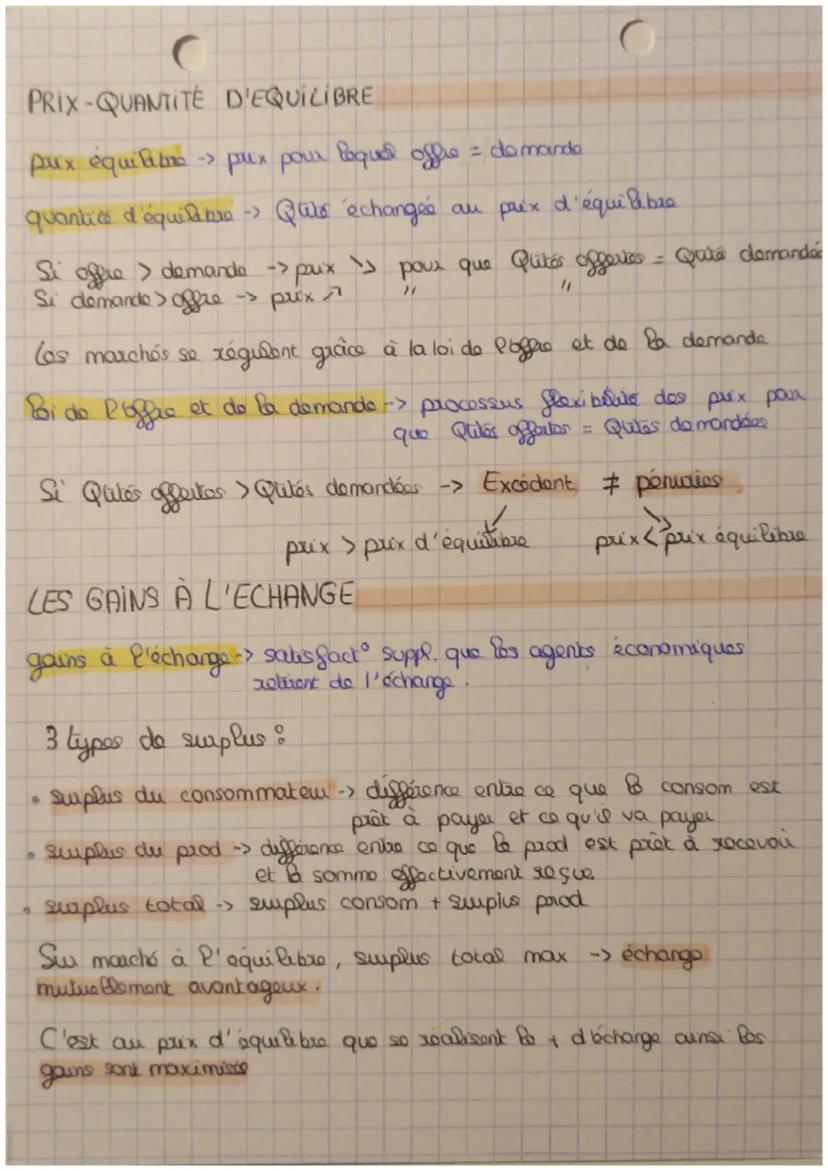 PRIX-QUANTITÉ D'EQUILIBRE
prix équilibre -> prix pour lequel offre = demande
quantité d'équilibre -> Qtité échangée au prix d'équilibre
Si offre > demande -> prix ↘ pour que Qtités offertes = Qtités demandées
Si demande > offre -> prix ↗ " "
Les marchés se régulent grâce à la loi de l'offre et de la demande
loi de l'offre et de la demande -> processus flexibilité des prix pour
que Qtités offertes = Qtités demandées
Si Qtités offertes > Qtités demandées -> Excédent ≠ pénuries
prix > prix d'équilibre prix < prix équilibre
LES GAINS À L'ECHANGE
gains à l'échange -> satisfact° suppl. que les agents économiques
retirent de l'échange.
3 types de surplus :
• surplus du consommateur -> différence entre ce que le consom est
prêt à payer et ce qu'il va payer
• surplus du prod -> différence entre ce que le prod est prêt à recevoir
et la somme effectivement reçue
• surplus total -> surplus consom + surplus prod
Sur marché à l'équilibre, surplus total max -> échange
mutuellement avantageux.
C'est au prix d'équilibre que se réalisent le + d'échange ainsi les
gains sont maximisés